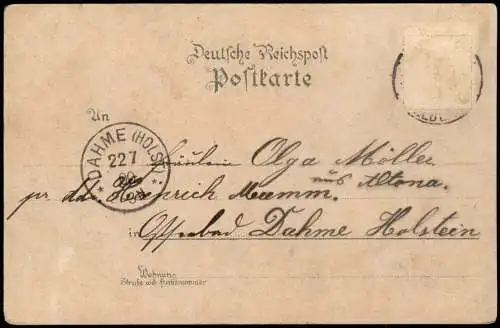 Deutsche Reichspost
Postkarte
An
DAHME (HOLST)
22 7
Fräulein Olga Möller
aus Altona.
pr. adr. Heinrich Mamm.
in Ostseebad Dahme Holstein
Wohnung
Straße und Hausnummer